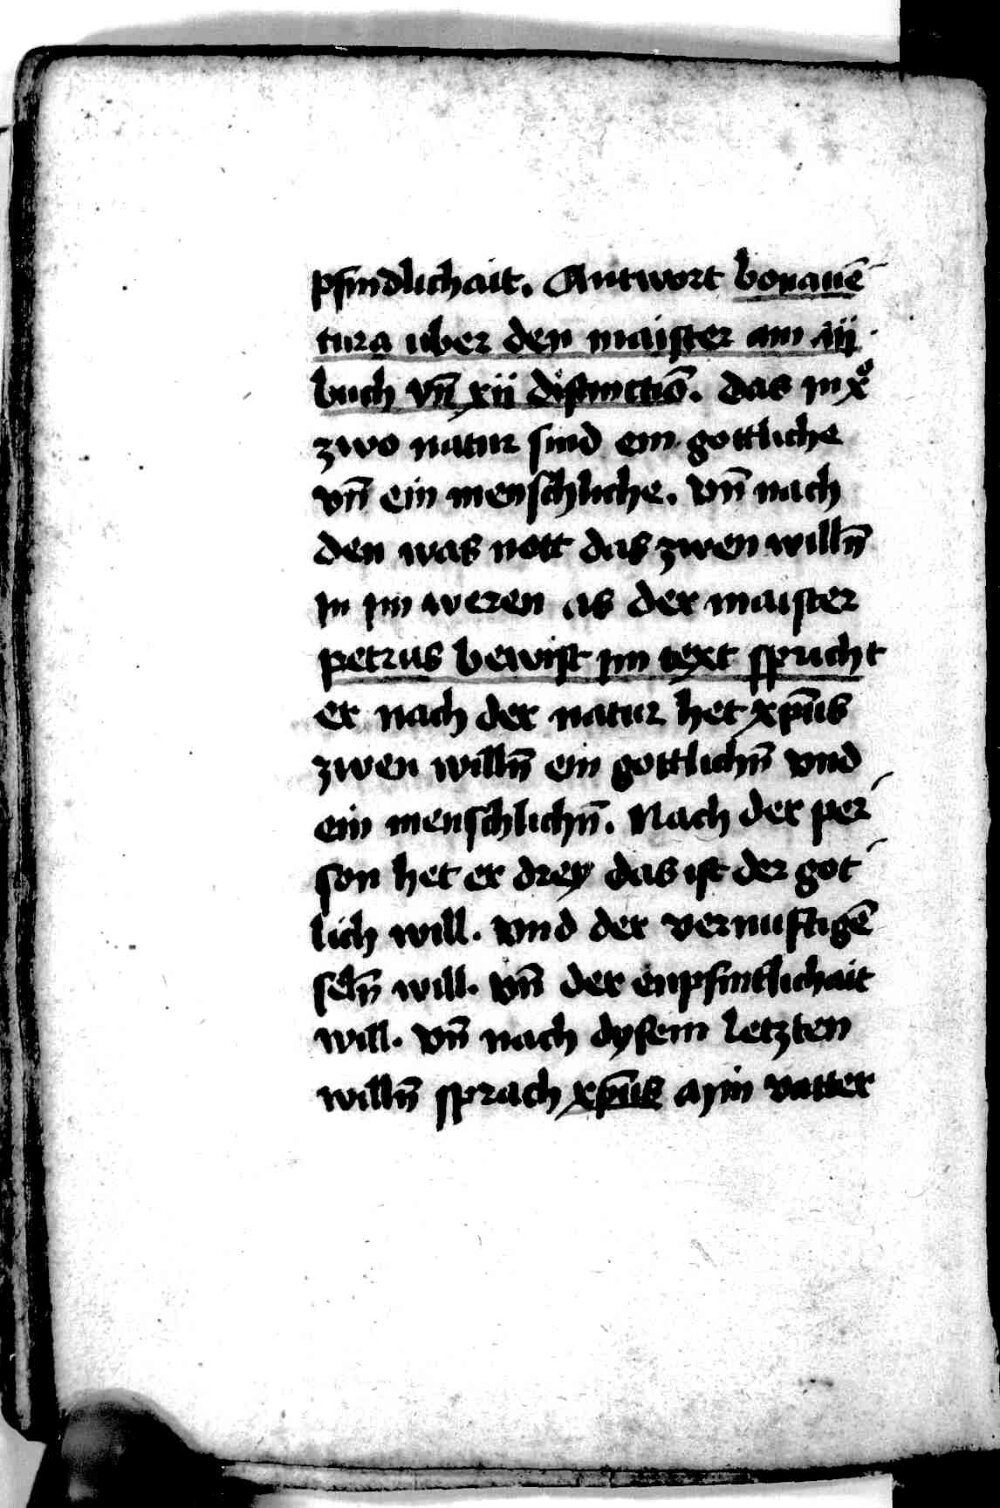 pfindlichait. Antwort bonauē
tura uber den maister am iij
buch vn̄ xij distinctiō. das in xͦ
zwo natur sind ein gottliche
vn̄ ein menschliche. vn̄ nach
den was nott das zwen willn̄
in im weren as der maister
petrus bewist im text spricht
er nach der natur het xp̄us
zwen willn̄ ein gottlichn̄ vnd
ein menschlichn̄. Nach der per
son het er drey das ist der got
lich will. vnd der vernuftigē
seln̄ will. vn̄ der enpfintlichait
will. vn̄ nach dysem letzten
willn̄ sprach xp̄us ayin vatter